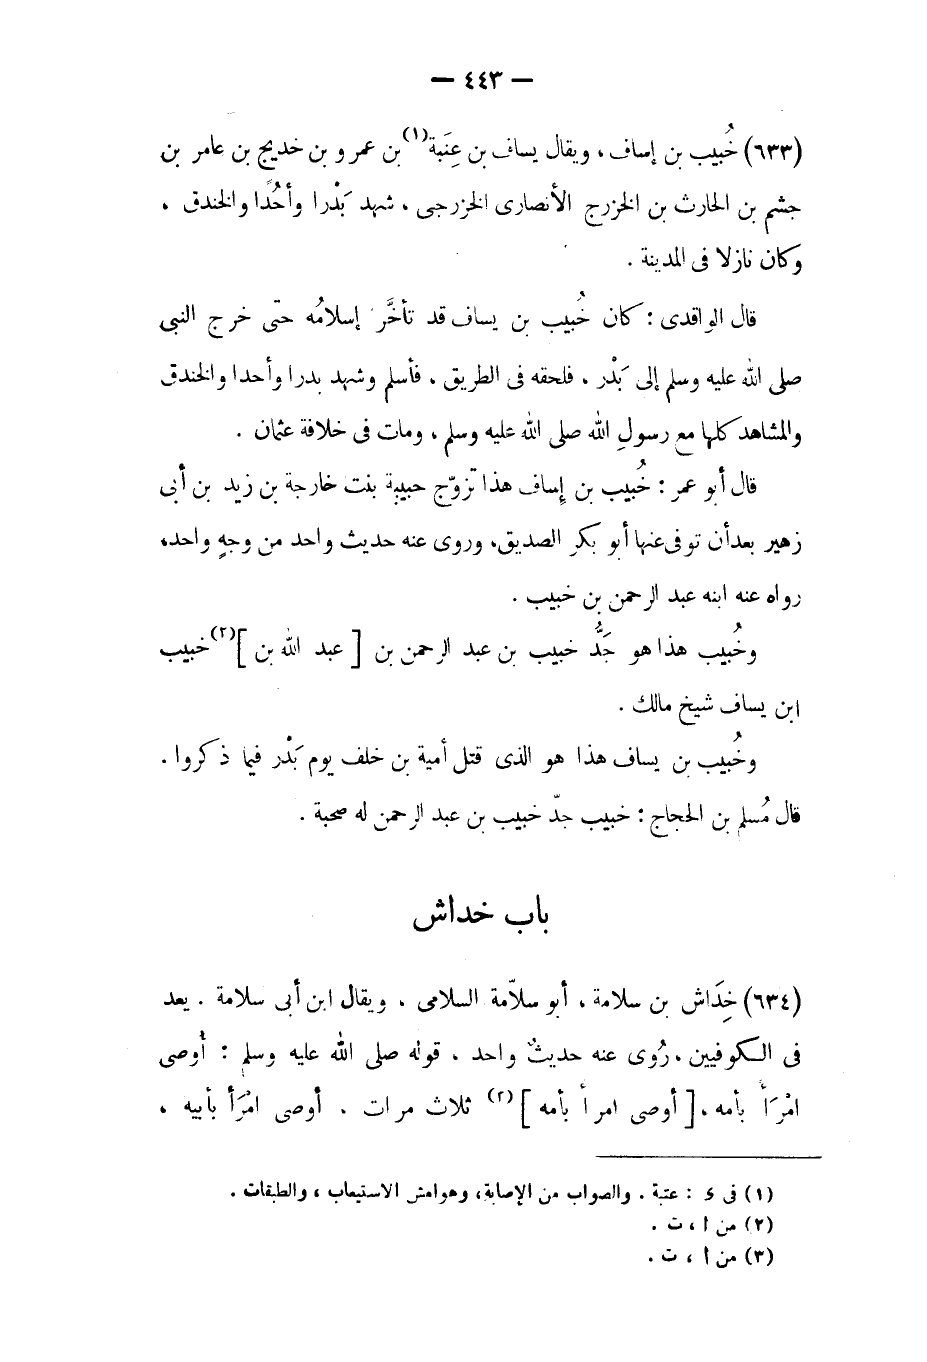 — ٤٤٣ —
(٦٣٣) خُبيب بن إساف ، ويقال يساف بن عِنَبة(١) بن عمرو بن خديج بن عامر بن
جشم بن الحارث بن الخزرج الأنصارى الخزرجى ، شهد بَدْرا وأُحُدًا والخندق ،
وكان نازلا فى المدينة .
قال الواقدى : كان خُبيب بن يساف قد تأخَّر إسلامُه حتى خرج النبى
صلى الله عليه وسلم إلى بَدْر ، فلحقه فى الطريق ، فأسلم وشهد بدرا وأحدا والخندق
والمشاهد كلها مع رسولِ الله صلى الله عليه وسلم ، ومات فى خلافة عثمان .
قال أبو عمر : خُبيب بن إِساف هذا تزوّج حبيبة بنت خارجة بن زيد بن أبى
زهير بعد أن توفى عنها أبو بكر الصديق، وروى عنه حديث واحد من وجهٍ واحد،
رواه عنه ابنه عبد الرحمن بن خبيب .
وخُبيب هذا هو جَدُّ خبيب بن عبد الرحمن بن [ عبد الله بن ](٢) خبيب
ابن يساف شيخ مالك .
وخُبيب بن يساف هذا هو الذى قتل أمية بن خلف يوم بَدْر فيما ذكروا .
قال مُسلم بن الحجاج : خبيب جدّ خبيب بن عبد الرحمن له صحبة .
باب خداش
(٦٣٤) خِدَاش بن سلامة ، أبو سلاّمة السلامى ، ويقال ابن أبى سلامة . يعد
فى الكوفيين ، رُوى عنه حديثٌ واحد ، قوله صلى الله عليه وسلم : أُوصى
امْرَأً بأمه ، [ أوصى امرأً بأمه ](٢) ثلاث مرات . أوصى امْرَأً بأبيه ،
(١) فى ى : عتبة . والصواب من الإصابة، وهوامش الاستيعاب ، والطبقات .
(٢) من ا ، ت .
(٣) من أ ، ت .